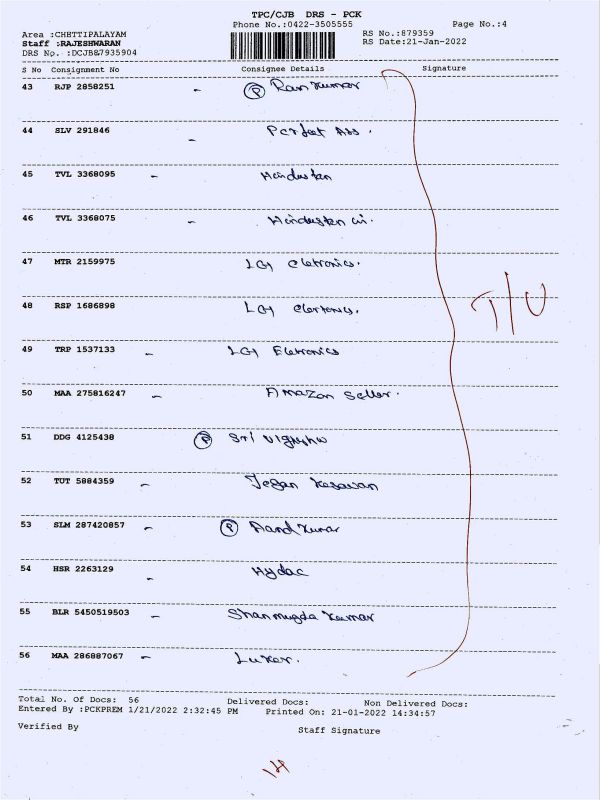 TPC/CJB DRS - PCK
Phone No.:0422-3505555
Page No.:4
Area :CHETTIPALAYAM
RS No.:879359
Staff :RAJESHWARAN
RS Date:21-Jan-2022
DRS No. :DCJB&7935904
S No Consignment No Consignee Details Signature
43 RJP 2858251 - P Ram Kumar
44 SLV 291846 - Perfect Ass.
45 TVL 3368095 - Hindustan
46 TVL 3368075 - Hindustan
47 MTR 2159975 LG
48 RSP 1686898 LG
49 TRP 1537133 - LG
50 MAA 275816247 - Amazon Seller.
51 DDG 4125438 P Sri
52 TUT 5884359 - Jegan Kesavan
53 SLM 287420857 - P Kumar
54 HSR 2263129 - Hydac
55 BLR 5450519503 - Shanmugda Kumar
56 MAA 286887067 - Luker.
T/U
Total No. Of Docs: 56 Delivered Docs: Non Delivered Docs:
Entered By :PCKPREM 1/21/2022 2:32:45 PM Printed On: 21-01-2022 14:34:57
Verified By Staff Signature